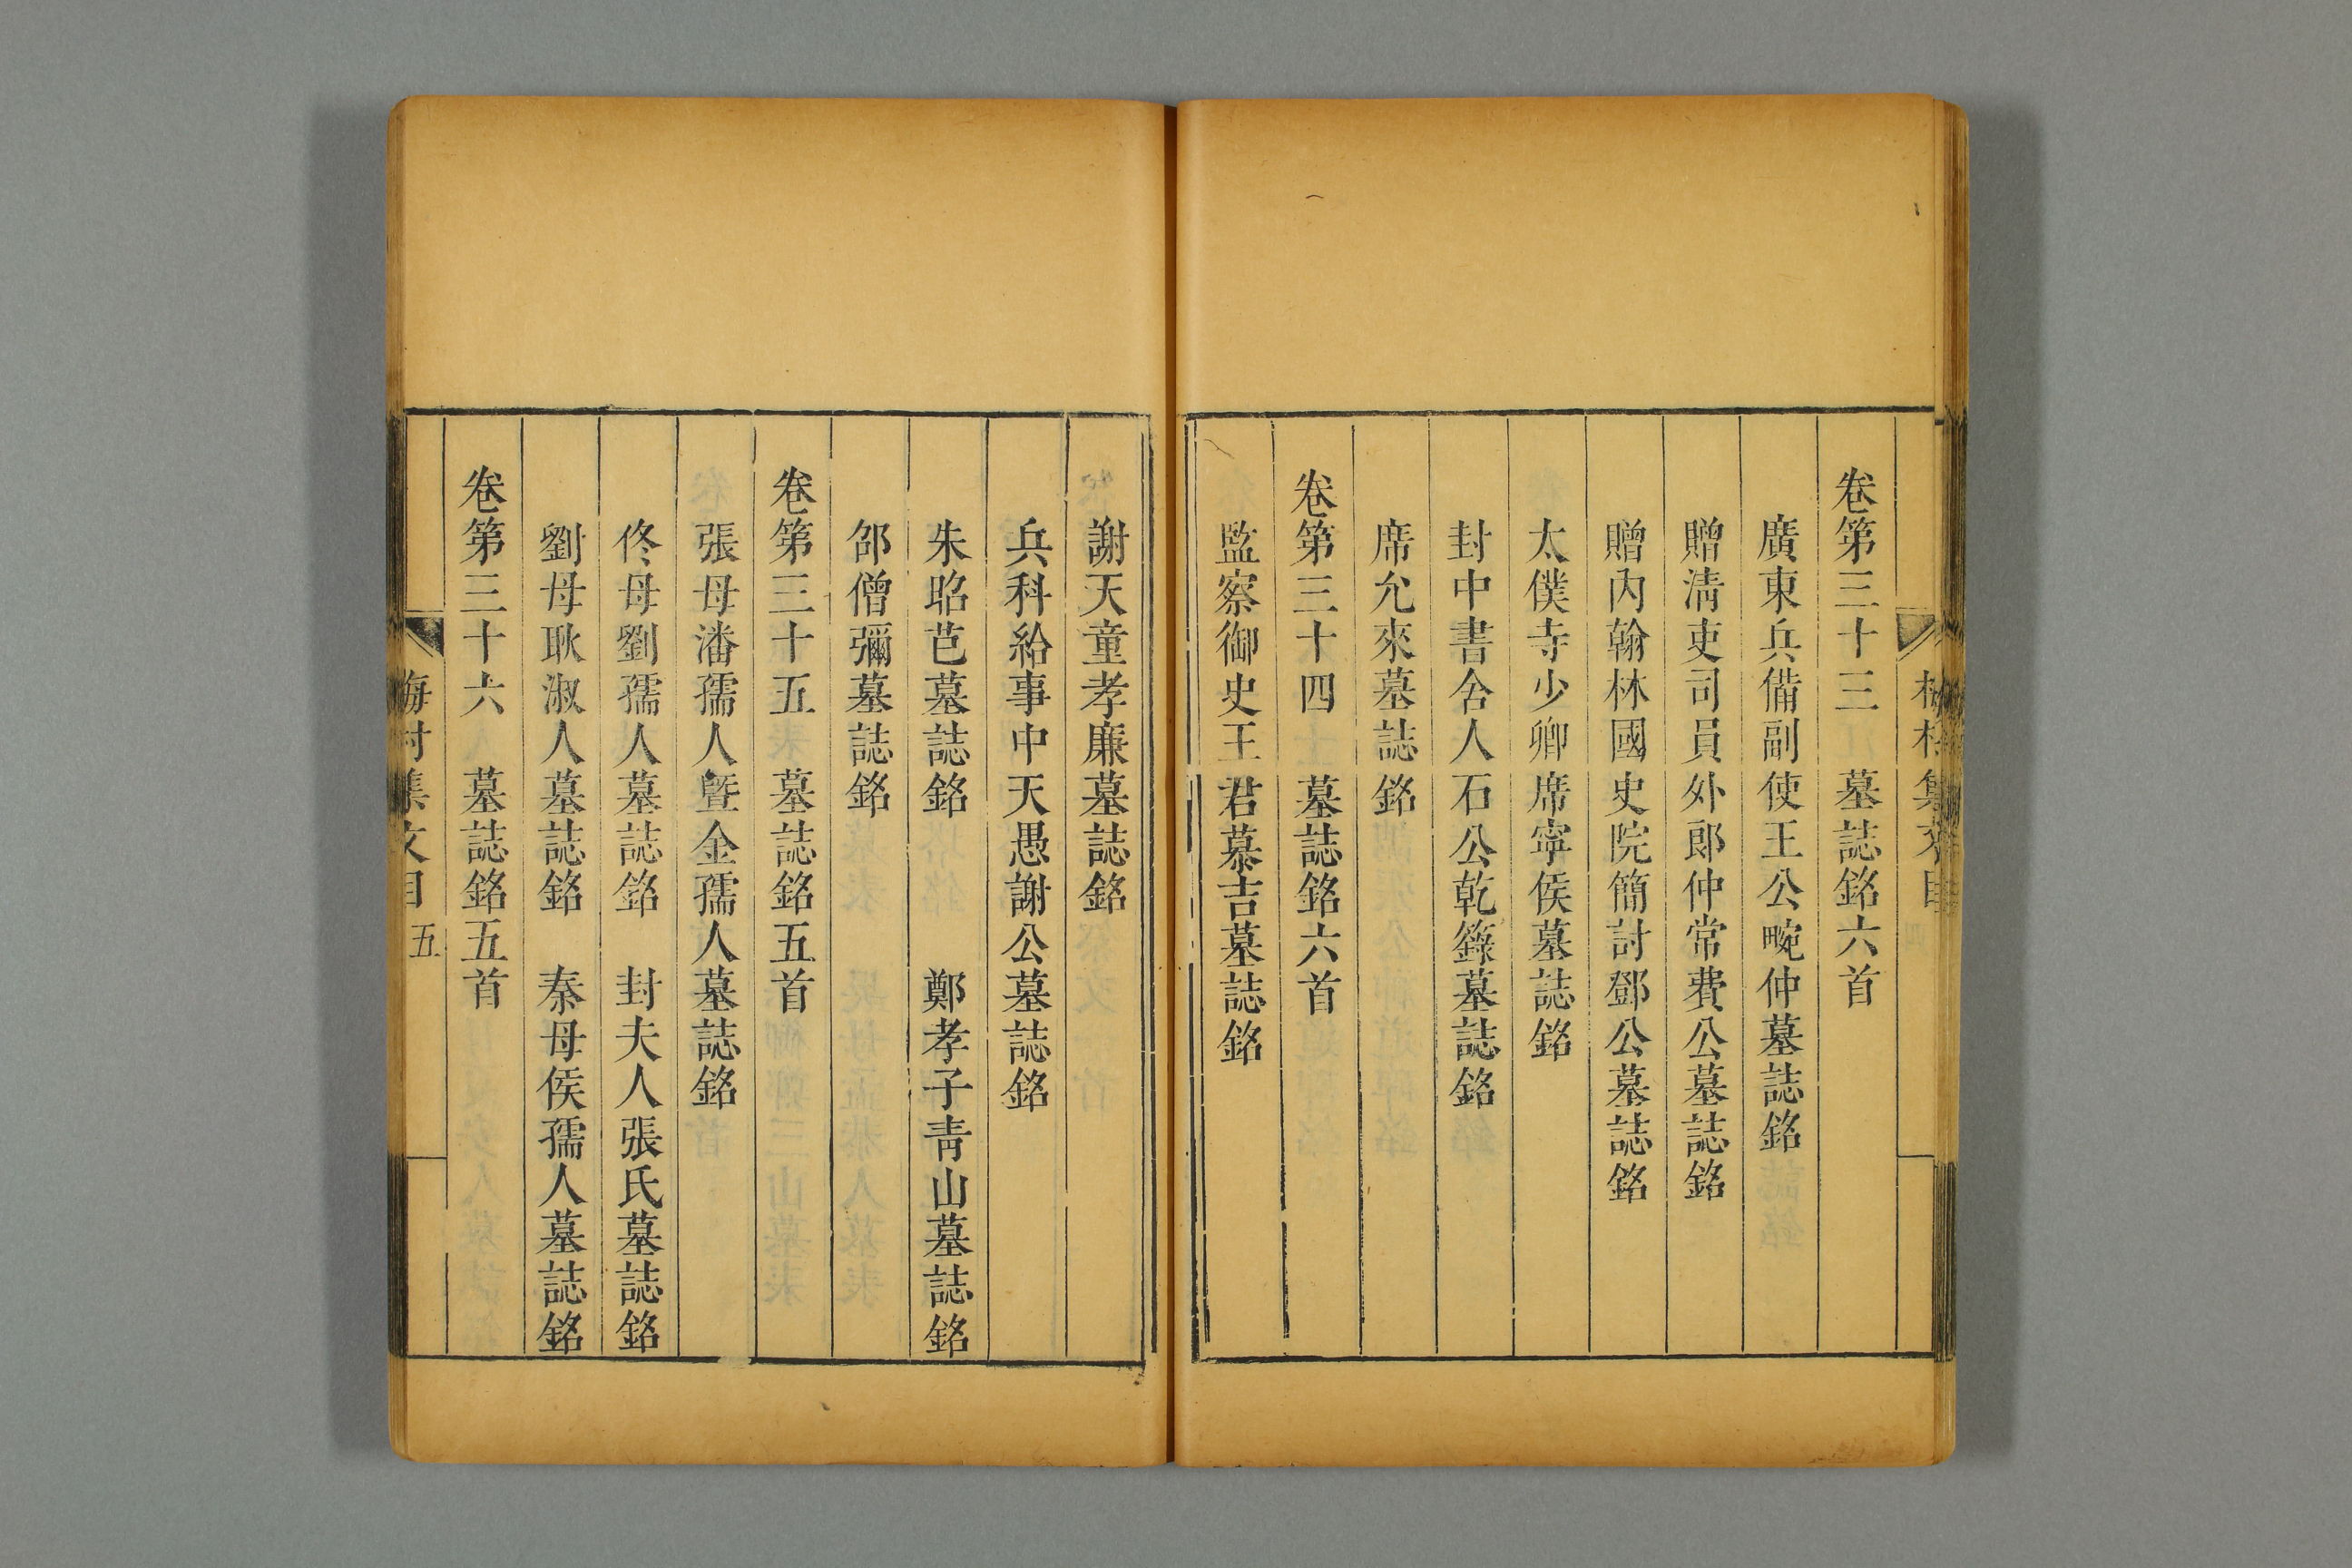 卷第三十三　墓誌銘六首
廣東兵備副使王公畹仲墓誌銘
贈淸吏司員外郎仲常費公墓誌銘
贈內翰林國史院簡討鄧公墓誌銘
太僕寺少卿席寧侯墓誌銘
封中書舍人石公乾籙墓誌銘
席允來墓誌銘
卷第三十四　墓誌銘六首
監察御史王君慕吉墓誌銘
謝天童孝廉墓誌銘
兵科給事中天愚謝公墓誌銘
朱昭芑墓誌銘　鄭孝子靑山墓誌銘
邵僧彌墓誌銘
卷第三十五　墓誌銘五首
張母潘孺人暨金孺人墓誌銘
佟母劉孺人墓誌銘　封夫人張氏墓誌銘
劉母耿淑人墓誌銘　秦母侯孺人墓誌銘
卷第三十六　墓誌銘五首
梅村集文目　五